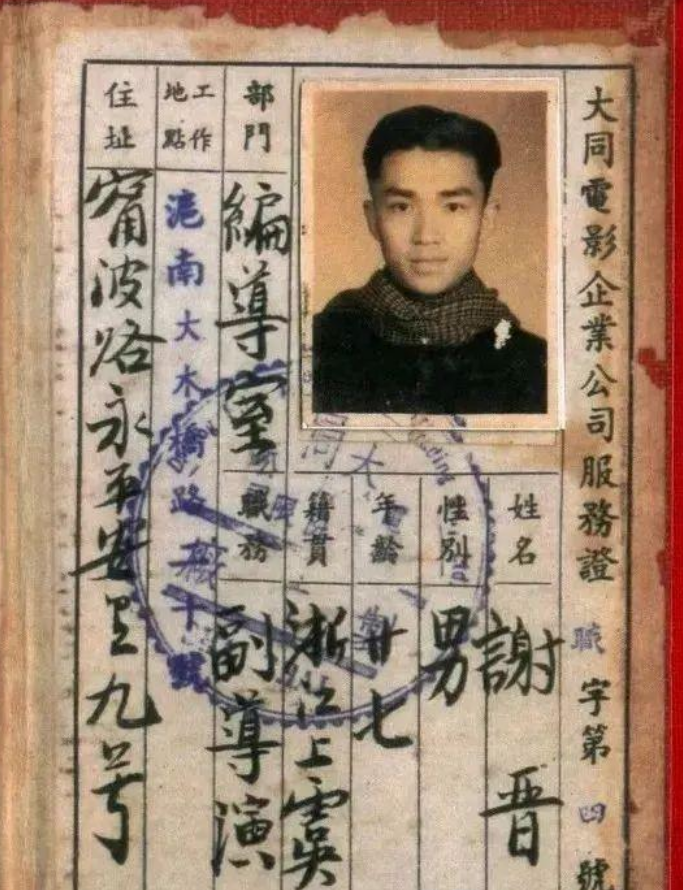 大同電影企業公司服務證
職字第四號
姓名
謝晋
性別
男
年齡
廿七
籍貫
浙江上虞
職務
副導演
部門
編導室
工作地點
滬南大木橋路
號
住址
甯波路永平安里九号
大同
Trading